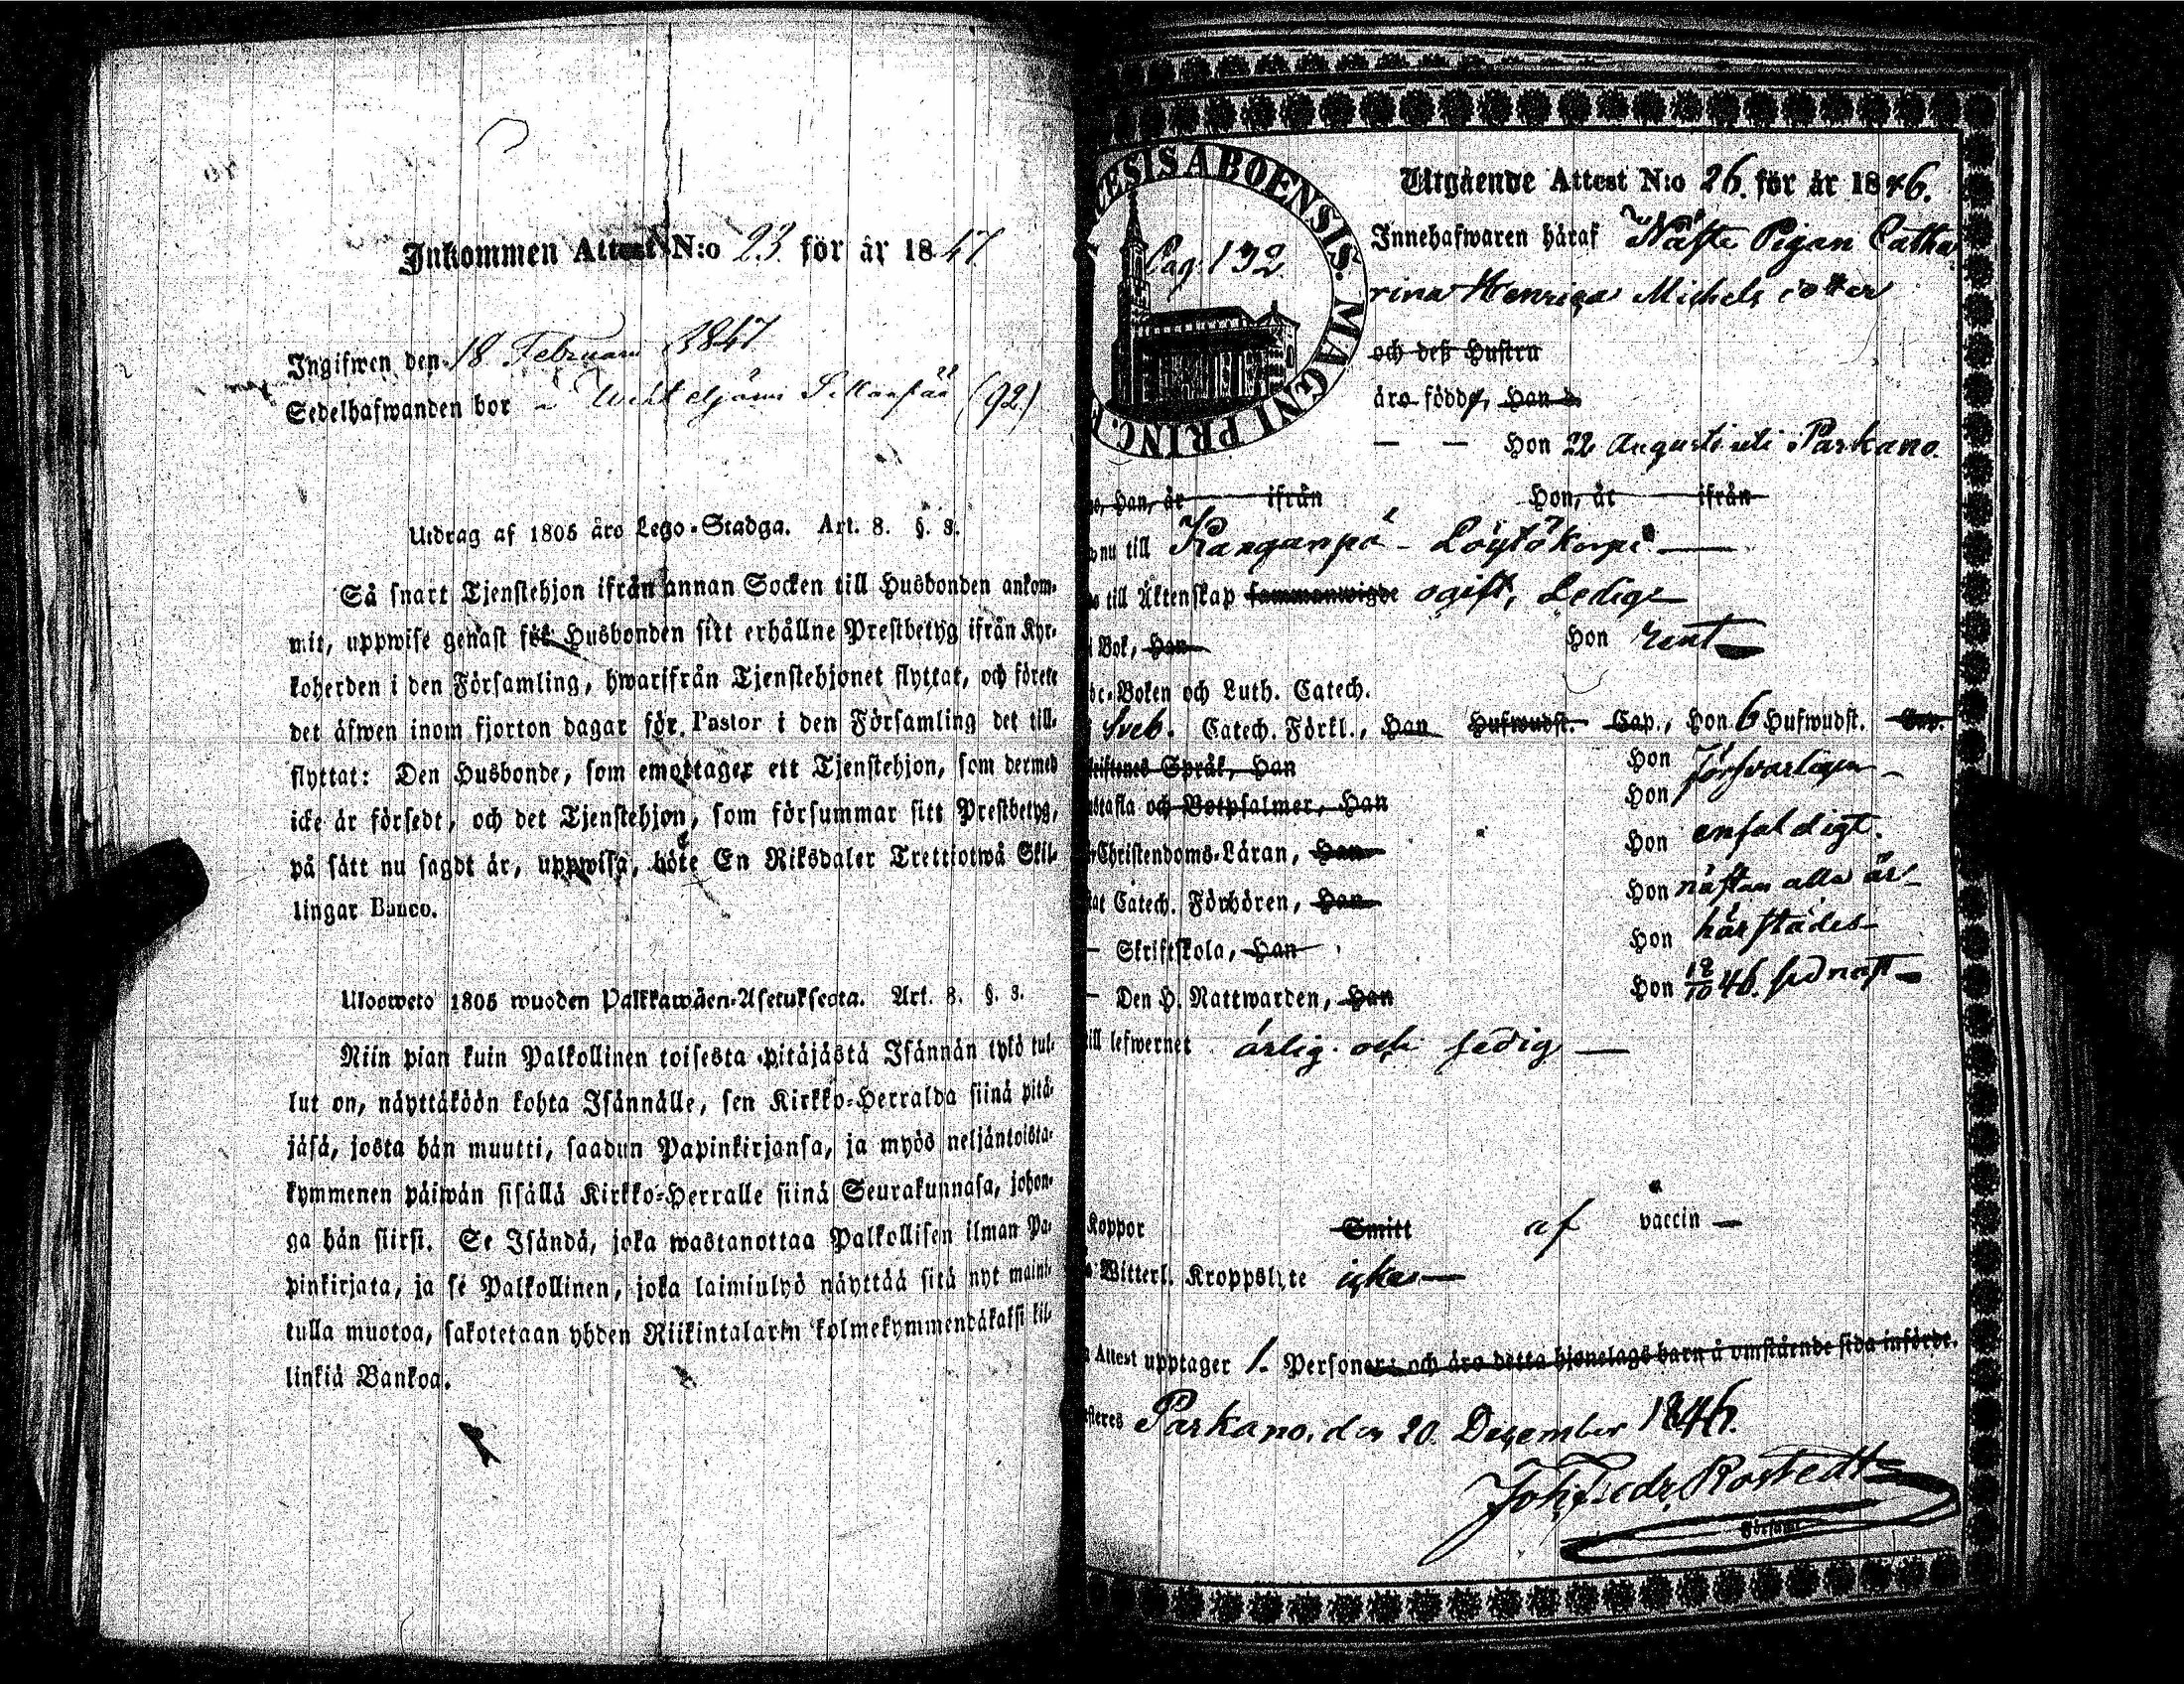 Inkommen Attest N:o 23 för år 1847
Ingifwen den 18 Februari 1847
Sedelhafwanden bor (92)
Utdrag af 1805 års Lego-Stadga. Art. 8. §. 3.
Så snart Tjenstehjon ifrån annan Socken till Husbonden ankom-
mit, uppwise genast för Husbonden sitt erhållne Prestbetyg ifrån Kyr-
koherden i den Församling, hwarifrån Tjenstehjonet flyttat, och förete
det äfwen inom fjorton dagar för Pastor i den Församling det till-
flyttat: Den Husbonde, som emottager ett Tjenstehjon, som dermed
icke är försedt, och det Tjenstehjon, som försummar sitt Prestbetyg,
på sätt nu sagdt är, uppwisa, böte En Riksdaler Trettiotwå Skil-
lingar Banco.
Ulosweto 1805 wuoden Palkkawäen-Asetuksesta. Art. 8. §. 3.
Niin pian kuin Palkollinen toisesta pitäjästä Isännän tykö tul-
lut on, näyttäköön kohta Isännälle, sen Kirkko-Herralda siinä pitä-
jäsä, josta hän muutti, saadun Papinkirjansa, ja myös neljäntoista-
kymmenen päiwän sisällä Kirkko-Herralle siinä Seurakunnasa, johon-
ga hän siirsi. Se Isändä, joka wastanottaa Palkollisen ilman Pa-
pinkirjata, ja se Palkollinen, joka laimiulyö näyttää sitä nyt maini-
tulla muotoa, sakotetaan yhden Riikintalarin kolmekymmendäkaksi kil-
linkiä Bankoa.
ESIS ABOENSIS. MAGNI PRINC. F
Pag. 132
Utgående Attest N:o 26. för år 1846.
Innehafwaren häraf Pigan Catha
rina Henrica Michelsdotter
och deß Hustru
äro födde, Han d
— — Hon 22 Augusti uti Parkano.
Han, år ifrån Hon, år ifrån
nu till Kanganpä - Löytökorpi —
till Äktenskap sammanwigde ogift, Ledig
Bok, Han Hon rent
Boken och Luth. Catech.
Sveb. Catech. Förkl., Han Hufwudst. Cap., Hon 6 Hufwudst. Cap.
Skriftenes Språk, Han Hon försvarligen
tafla och Botpsalmer, Han Hon
Christendoms-Läran, Han Hon enfaldigt.
Catech. Förhören, Han Hon nästan alla år
— Skriftskola, Han Hon härstädes
— Den H. Nattwarden, Han Hon 18/10 46. sednast
till lefwernet ärlig och sedig —
Koppor Smitt af vaccin —
Witterl. Kroppslyte icke —
Attest upptager 1. Personer: och äro detta hjonelags barn å omstående sida införde.
Parkano, den 20. December 1846.
Joh. Fredr. Rostedt